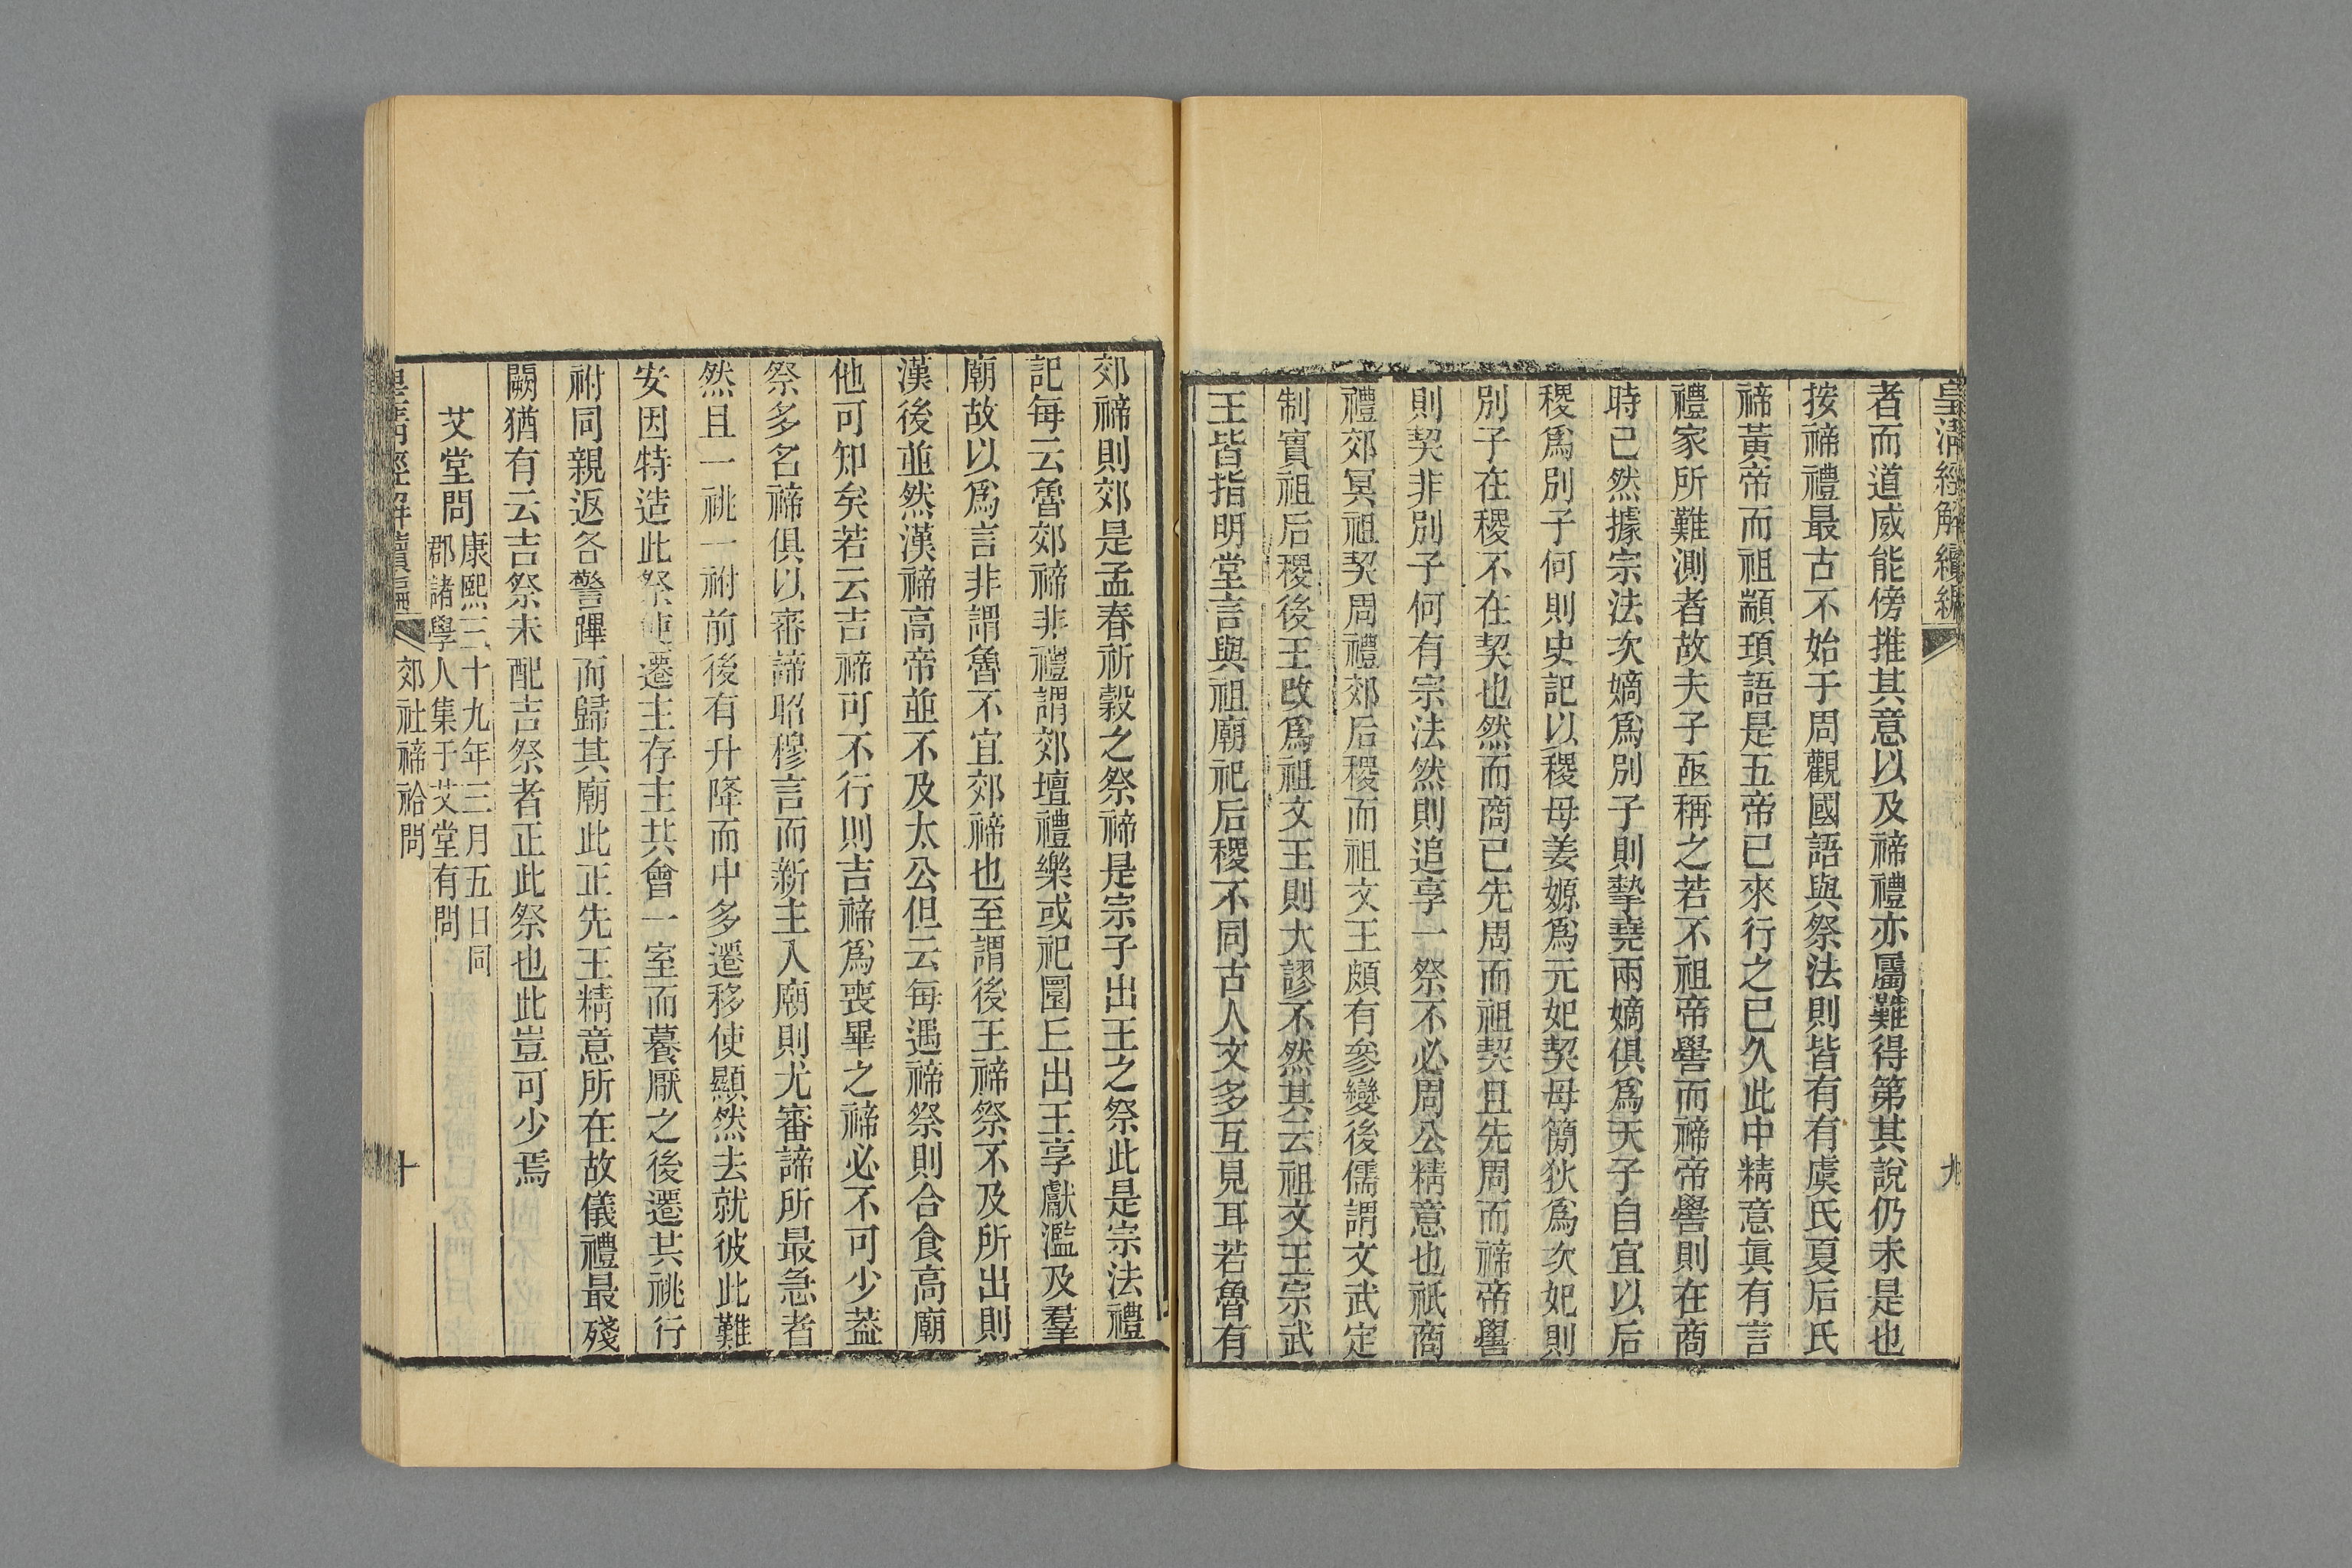 皇清經解續編
九
者而道咸能傍推其意以及禘禮亦屬難得第其說仍未是也
按禘禮最古不始于周觀國語與祭法則皆有有虞氏夏后氏
禘黃帝而祖顓頊語是五帝已來行之已久此中精意眞有言
禮家所難測者故夫子亟稱之若不祖帝嚳而禘帝嚳則在商
時已然據宗法次嫡爲別子則摯堯兩嫡俱爲天子自宜以后
稷爲別子何則史記以稷母姜嫄爲元妃契母簡狄爲次妃則
別子在稷不在契也然而商已先周而祖契且先周而禘帝嚳
則契非別子何有宗法然則追享一祭不必周公精意也祇商
禮郊冥祖契周禮郊后稷而祖文王頗有參變後儒謂文武定
制實祖后稷後王改爲祖文王則大謬不然其云祖文王宗武
王皆指明堂言與祖廟祀后稷不同古人文多互見耳若魯有
郊禘則郊是孟春祈穀之祭禘是宗子出王之祭此是宗法禮
記每云魯郊禘非禮謂郊壇禮樂或祀圜丘出王享獻濫及羣
廟故以爲言非謂魯不宜郊禘也至謂後王禘祭不及所出則
漢後並然漢禘高帝並不及太公但云每遇禘祭則合食高廟
他可知矣若云吉禘可不行則吉禘爲喪畢之禘必不可少葢
祭多名禘俱以審諦昭穆言而新主入廟則尤審諦所最急者
然且一祧一祔前後有升降而中多遷移使顯然去就彼此難
安因特造此祭使遷主存主共會一室而暮厭之後遷共祧行
祔同親返各警蹕而歸其廟此正先王精意所在故儀禮最殘
闕猶有云吉祭未配吉祭者正此祭也此豈可少焉
艾堂問康熙三十九年三月五日同
郡諸學人集于艾堂有問
皇清經解續編
郊社禘祫問
十